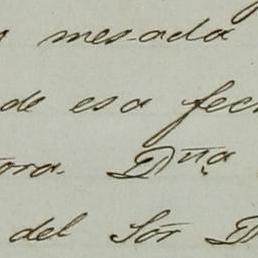 mesada
de esa fec
ora. Dña
del Sor D